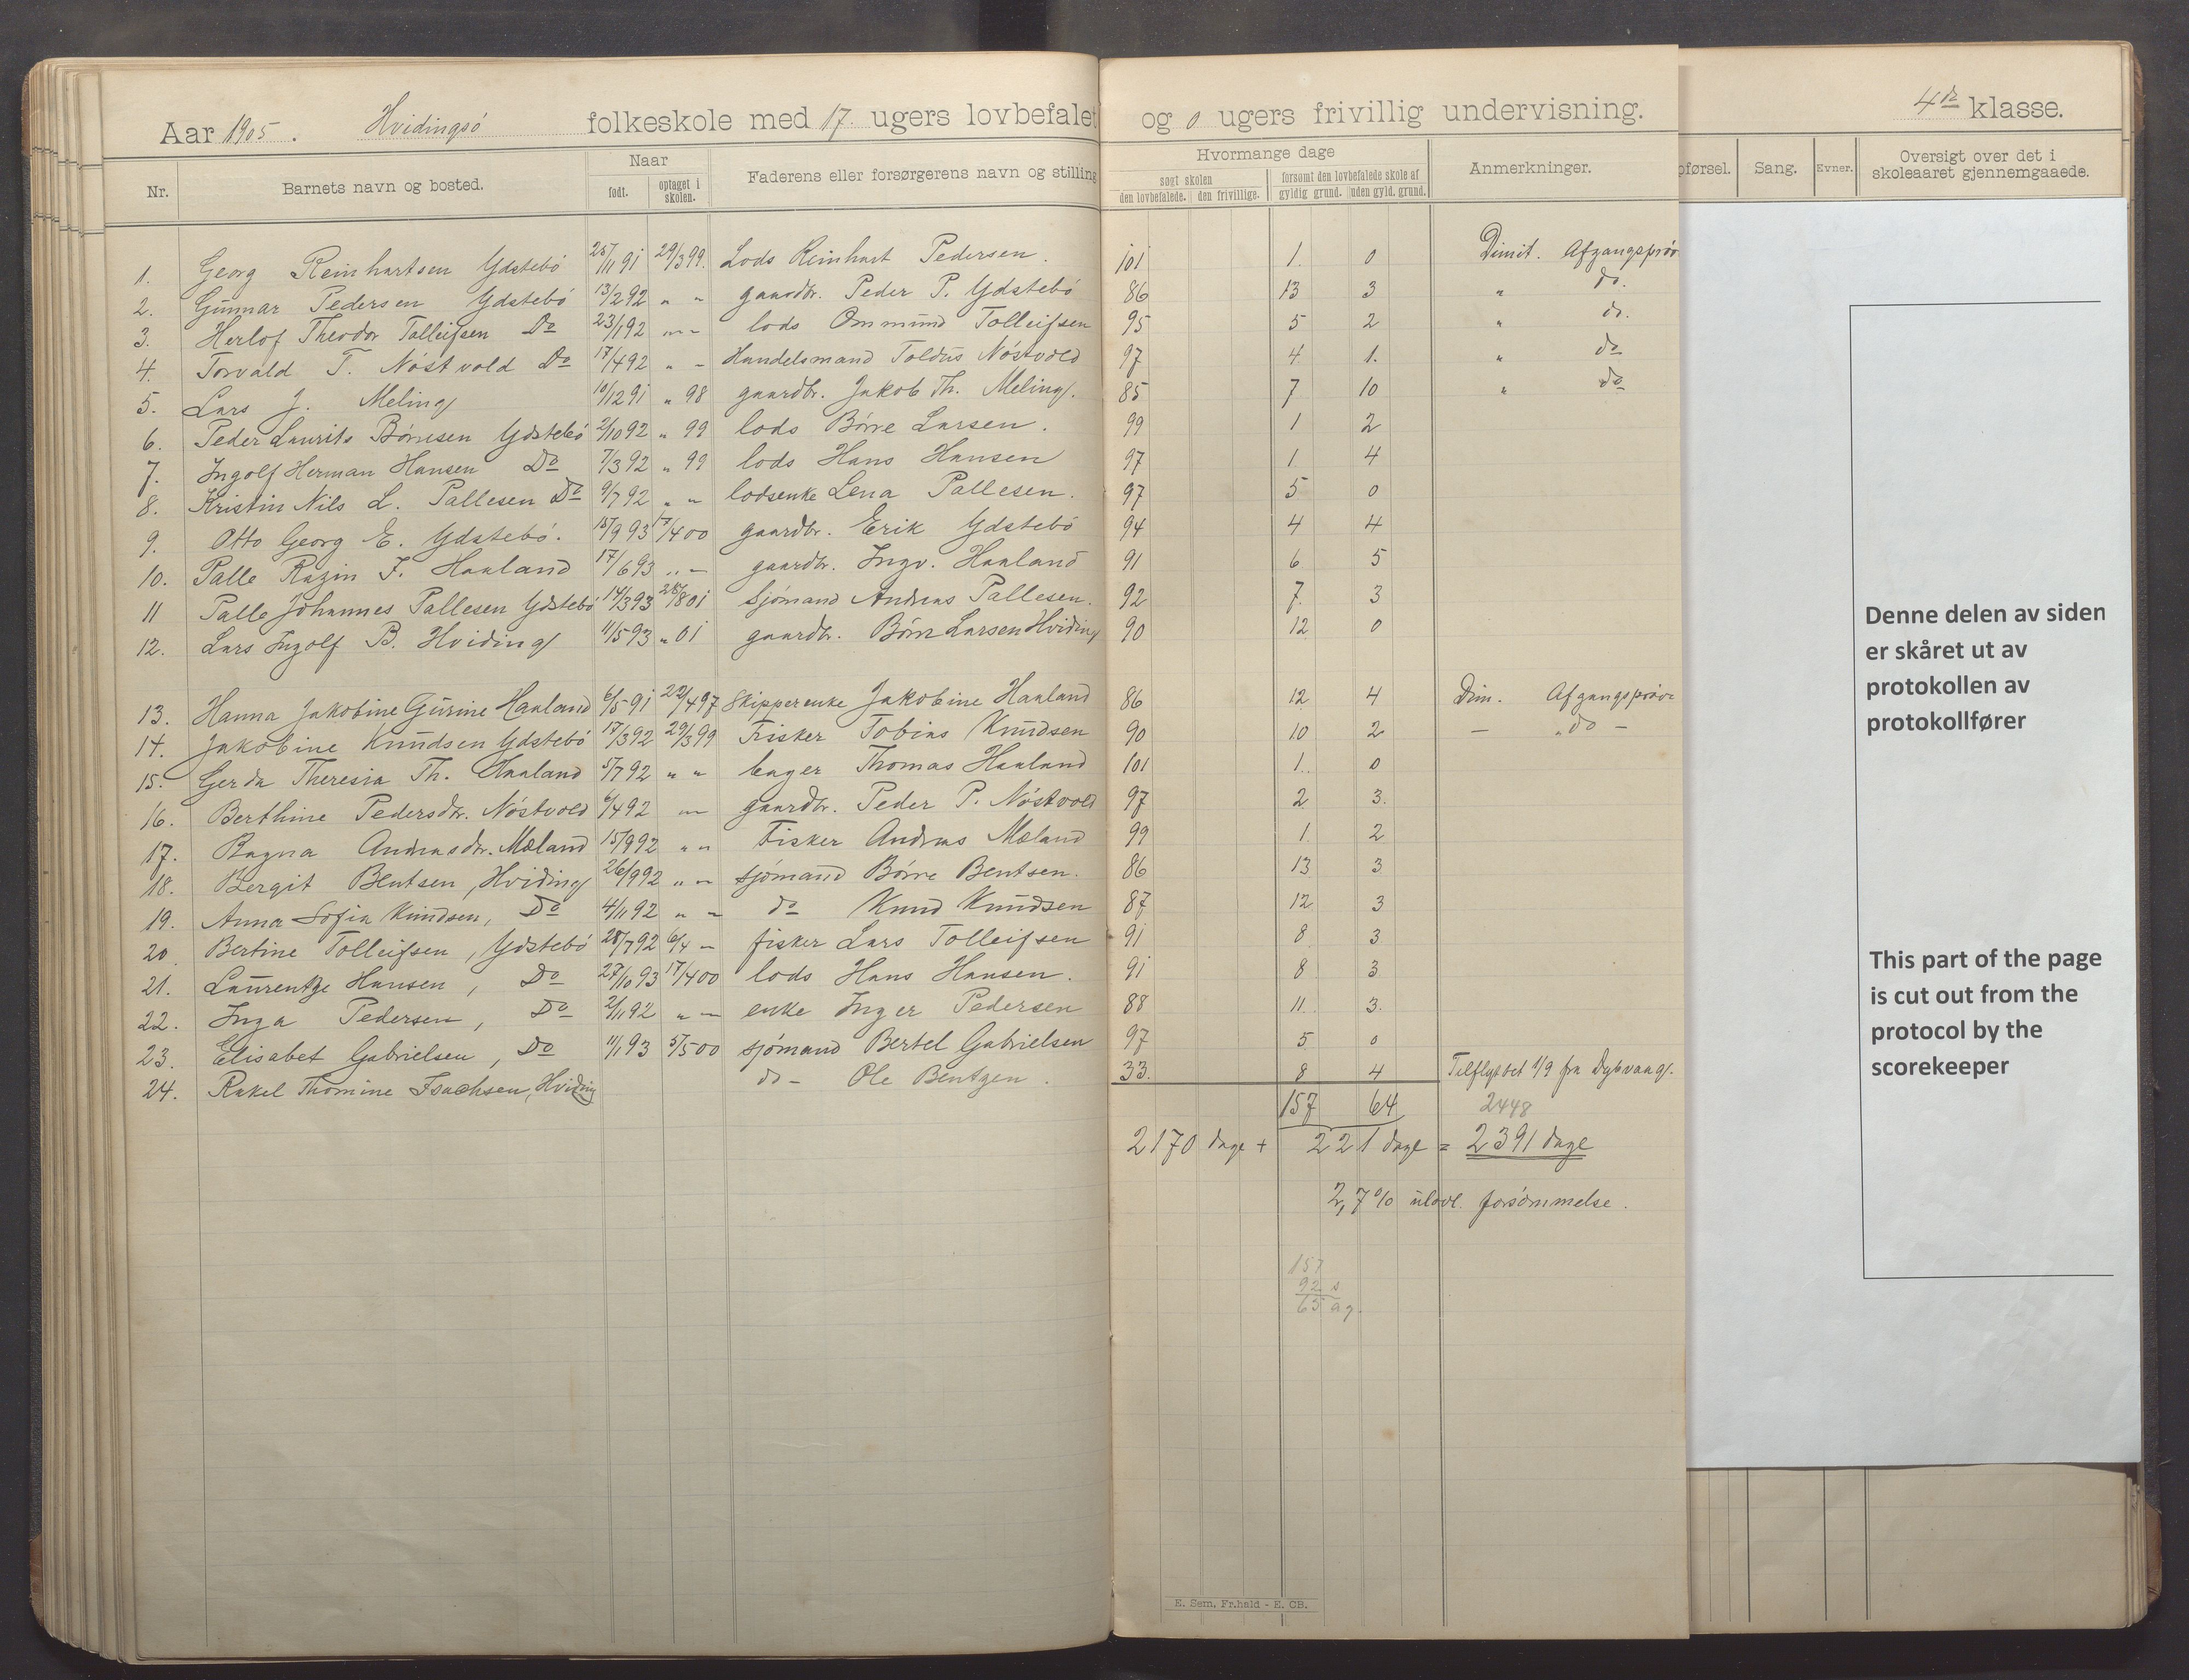 Aar 1905. Hvidingsö folkeskole med 17 ugers lovbefalet og 0 ugers frivillig undervisning. 4de klasse.
Nr. Barnets navn og bosted. Naar født. optaget i skolen. Faderens eller forsørgerens navn og stilling Hvormange dage søgt skolen den lovbefalede. den frivillige. forsømt den lovbefalede skole af gyldig grund. uden gyld. grund. Anmerkninger. pførsel. Sang. Evner. Oversigt over det i skoleaaret gjennemgaaede.
1. Georg Reinhartsen Ydstebö 25/11 91 29/3 99. Lods Reinhart Pedersen. 101 1. 0 Dimit. Afgangsprøv
2. Gunnar Pedersen Ydstebö 13/2 92 " " gaardbr. Peder P. Ydstebö 86 13 3 " do.
3. Herlof Theodor Tolleifsen Do 23/1 92 " " lods Ommund Tolleifsen 95 5 2 " do.
4. Torvald T. Nöstvold Do 17/4 92 " - Handelsmand Toldus Nöstvold 97 4 1. " do
5. Lars J. Meling 10/12 91 " 98 gaardbr. Jakob Th. Meling. 85 7 10 " do
6. Peder Laurits Börresen Ydstebö 2/10 92 " 99 lods Börre Larsen. 99 1 2
7. Ingolf Herman Hansen Do 7/3 92 " 99 lods Hans Hansen 97 1 4
8. Kristin Nils L. Pallesen Do 9/7 92 " " lodsenke Lena Pallesen. 97 5 0
9. Otto Georg E. Ydstebö. 15/9 93 17/4 00 gaardbr. Erik Ydstebö 94 4 4
10. Palle Razin I. Haaland 17/6 93 " - gaardbr. Ingv. Haaland 91 6 5
11 Palle Johannes Pallesen Ydstebö 14/3 93 28/8 01 Sjömand Andreas Pallesen. 92 7. 3
12. Lars Ingolf B. Hviding 11/5 93 " 01 gaardbr. Börre Larsen Hviding 90 12 0
13. Hanna Jakobine Gurine Haaland 6/5 91 22/4 97 Skipperenke Jakobine Haaland 86 12 4 Dim. Afgangsprøve
14. Jakobine Knudsen Ydstebö 17/3 92 29/3 99 Fisker Tobias Knudsen 90 10 2 - " do -
15. Gerda Theresia Th. Haaland 5/7 92 " " bager Thomas Haaland 101 1. 0
16. Berthine Pedersdtr. Nöstvold 6/4 92 " gaardbr. Peder P. Nöstvold 97 2 3.
17. Ragna Andreasdtr. Mæland 15/9 92 " " Fisker Andreas Mæland 99 1. 2
18. Bergit Bentsen, Hviding 26/9 92 " - sjömand Börre Bentsen. 86 13 3
19. Anna Sofia Knudsen, Do 4/1 92 " - do Knud Knudsen 87 12 3
20. Bertine Tolleifsen, Ydstebö 28/7 92 6/4 - fisker Lars Tolleifsen 91 8 3
21. Laurentze Hansen, Do 27/10 93 17/4 00 lods Hans Hansen. 91 8 3
22. Inga Pedersen, Do 2/1 92 " - enke Inger Pedersen 88 11. 3.
23. Elisabet Gabrielsen, Do 11/1 93 5/5 00 sjömand Bertel Gabrielsen 97 5 0
24. Rakel Thomine Isachsen, Hviding do - Ole Bentzen. 33. 8 4 Tilflyttet 1/9 fra Dybvaag.
157 64 2448
2170 dage + 221 dage = 2391 dage
2,7 % ulovl. forsömmelse.
157
92 s
65 ag.
E. Sem, Fr.hald - E. CB.
Denne delen av siden
er skåret ut av
protokollen av
protokollfører
This part of the page
is cut out from the
protocol by the
scorekeeper